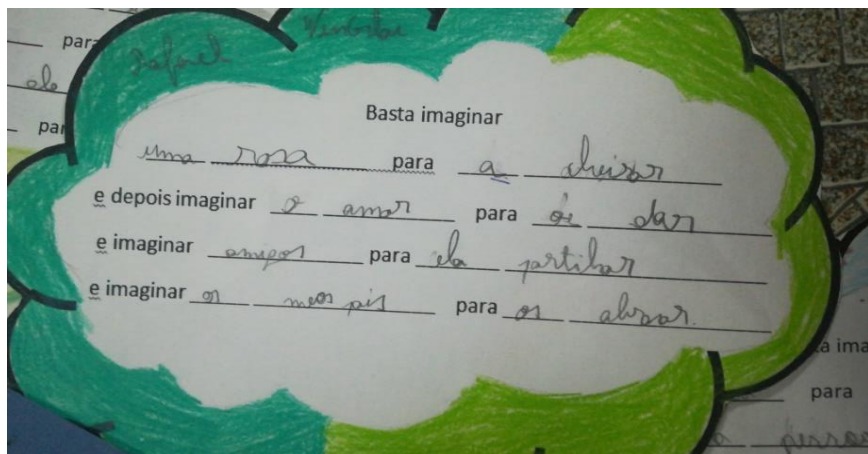 Rafael
para
Basta imaginar
uma rosa para a cheirar
e depois imaginar o amar para o dar
e imaginar amigos para ela partilhar
e imaginar os meos pais para os abrasar.
para
pessoa